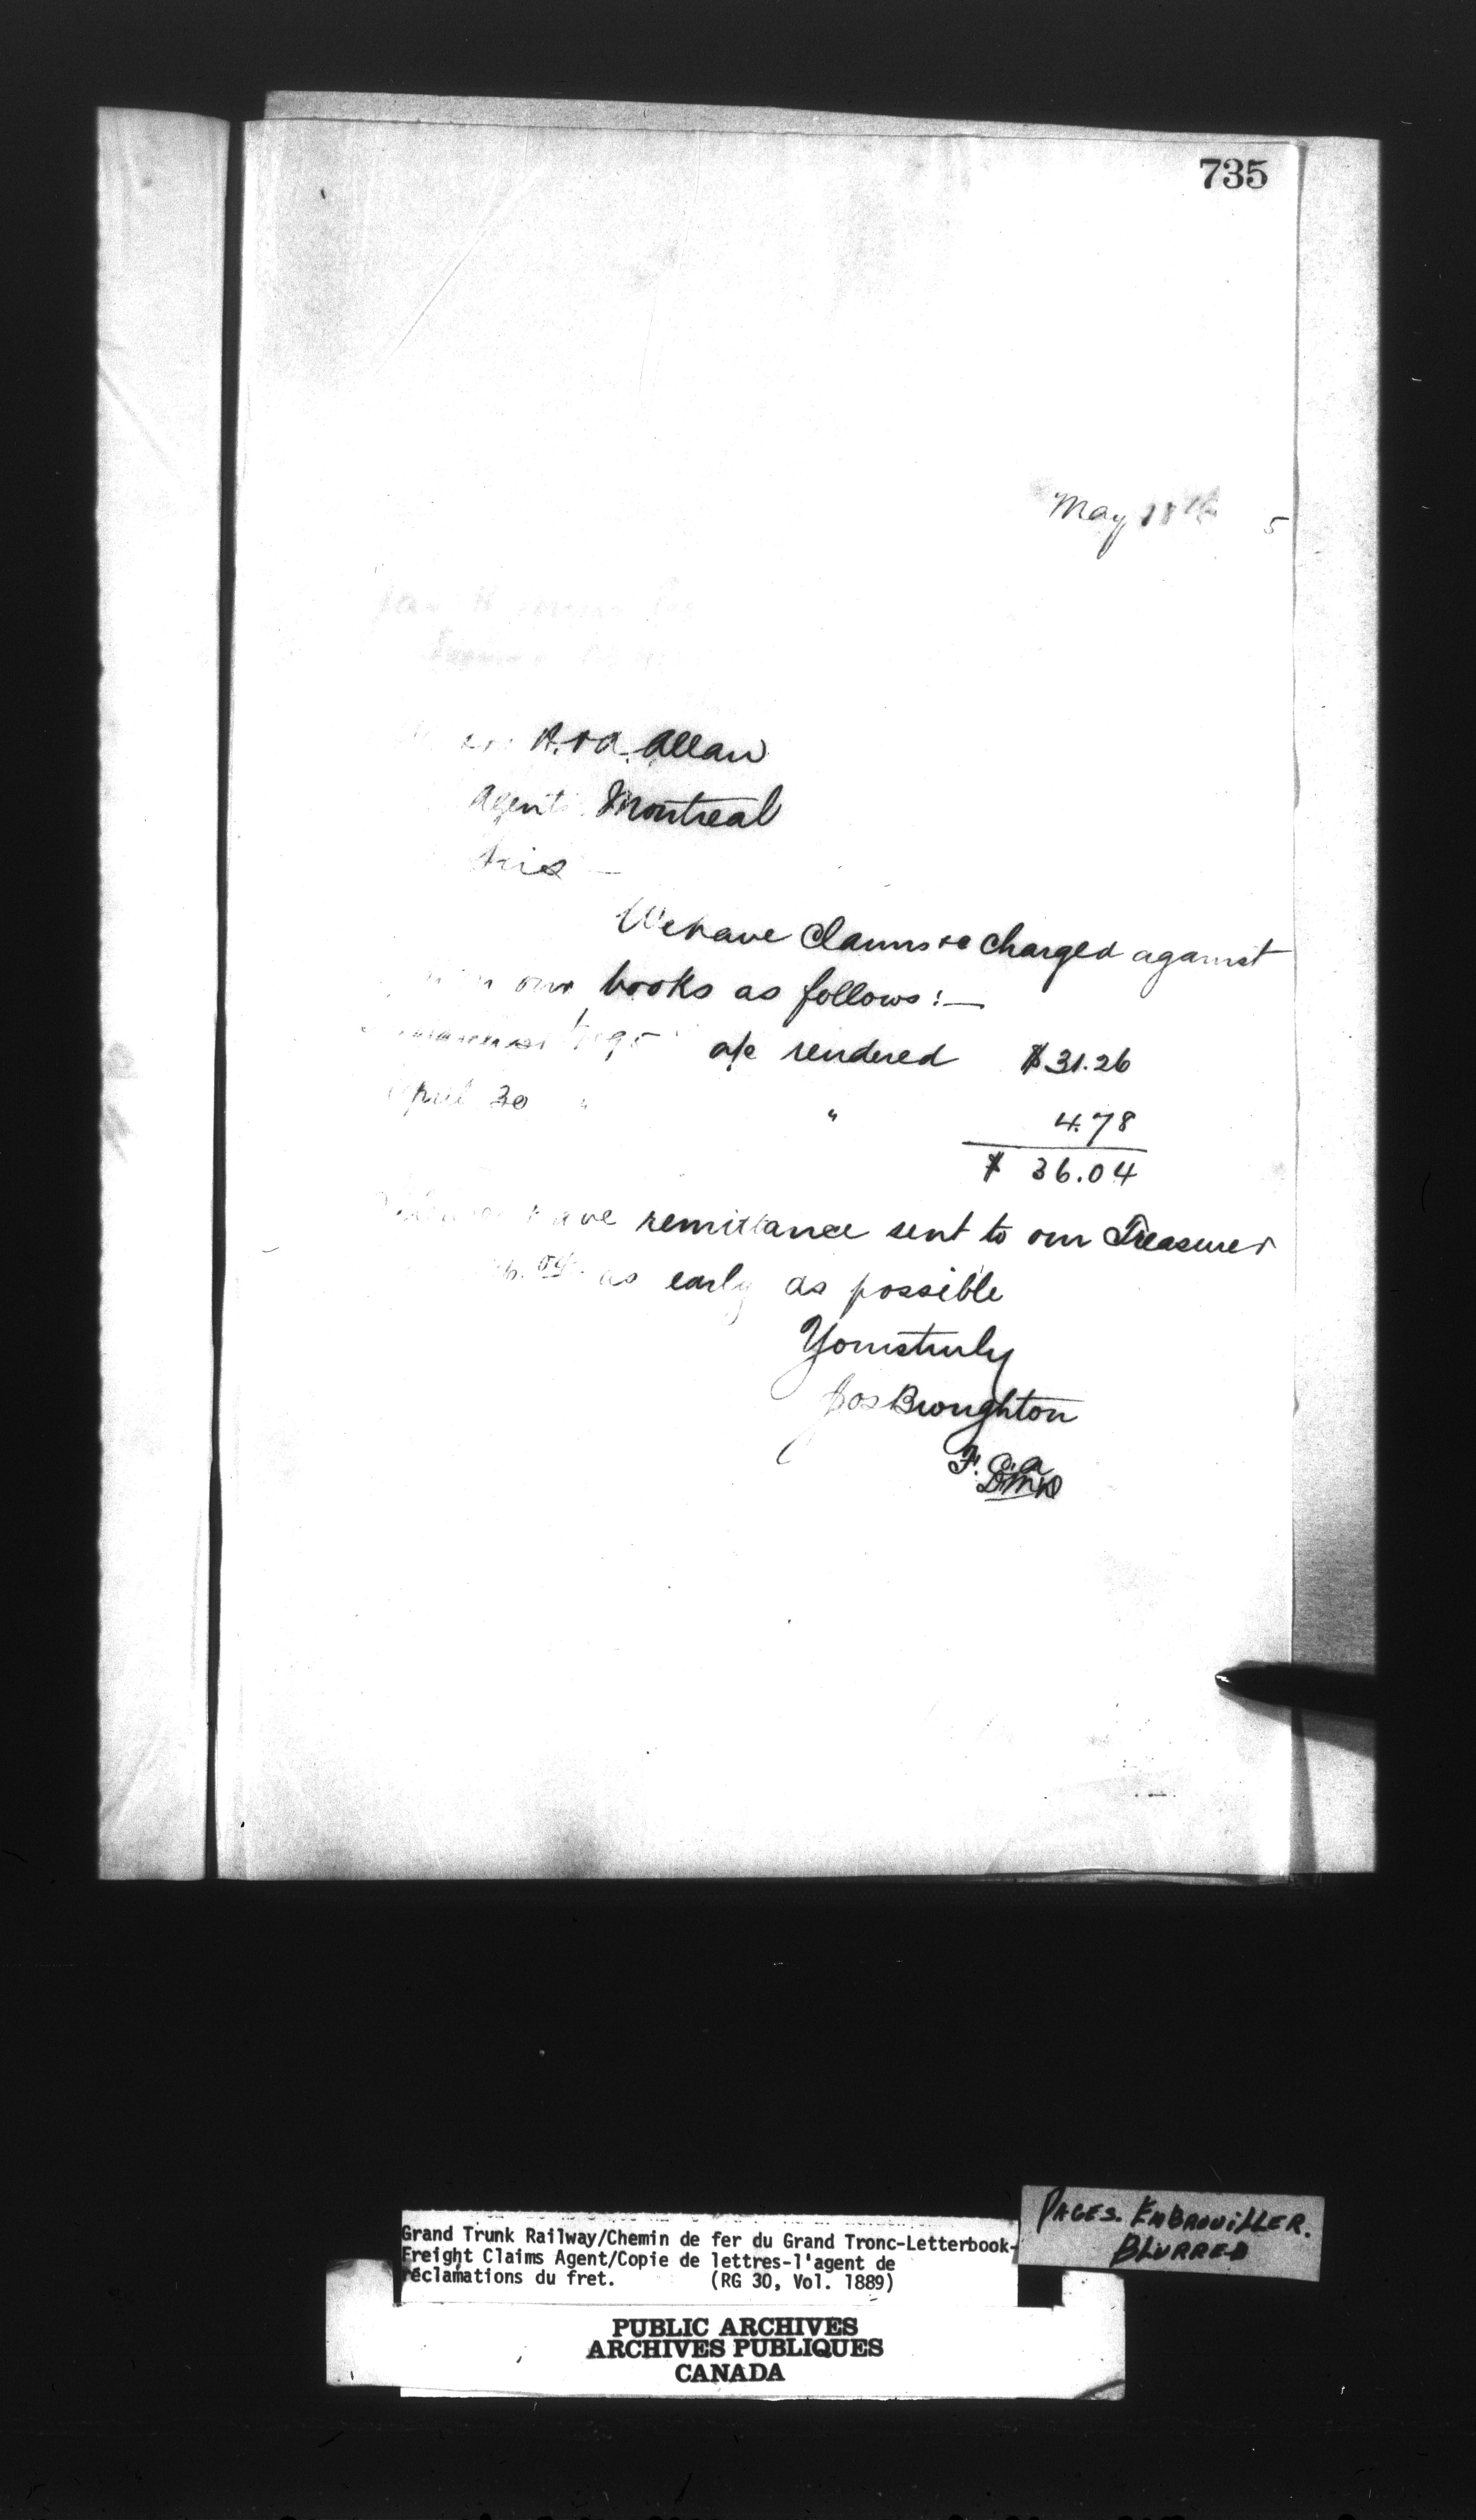 735
May 18th 5
H. & A. Allan
Agents Montreal
We have claims &c charged against
in our books as follows:—
95 a/c rendered $31.26
April 30 " " 4.78
$ 36.04
have remittance sent to our Treasurer
as early as possible
Yours truly
Jos Broughton
F. C. A
Grand Trunk Railway/Chemin de fer du Grand Tronc-Letterbook-
Freight Claims Agent/Copie de lettres-l'agent de
réclamations du fret. (RG 30, Vol. 1889)
PAGES. EMBROUILLER.
BLURRED
PUBLIC ARCHIVES
ARCHIVES PUBLIQUES
CANADA